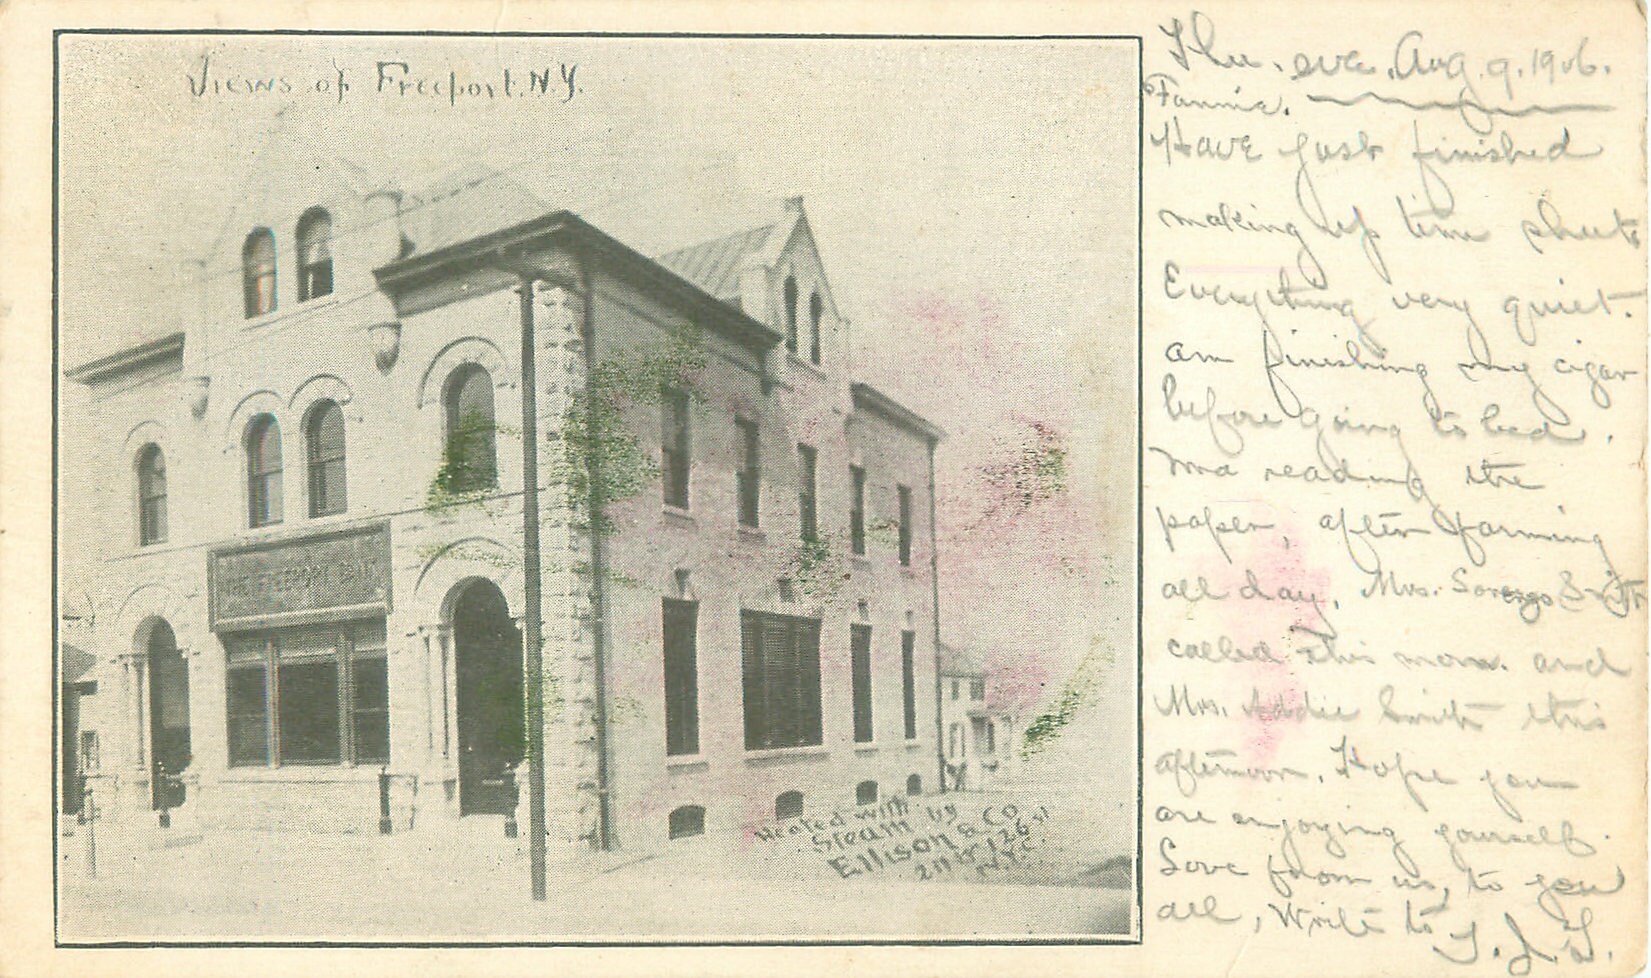 Views of Freeport, N.Y.
THE FREEPORT BANK
Heated with
Steam by
Ellison & Co
W 126 st
N.Y.C.
Thu. eve. Aug. 9. 1906.
Fannie.
Have just finished
making up time sheets
Everything very quiet.
am finishing my cigar
before going to bed.
Ma reading the
paper, after farming
all day, Mrs. Smith
called this morn. and
Mrs. Addie Smith this
afternoon. Hope you
are enjoying yourself.
Love from us, to you
all, Write to